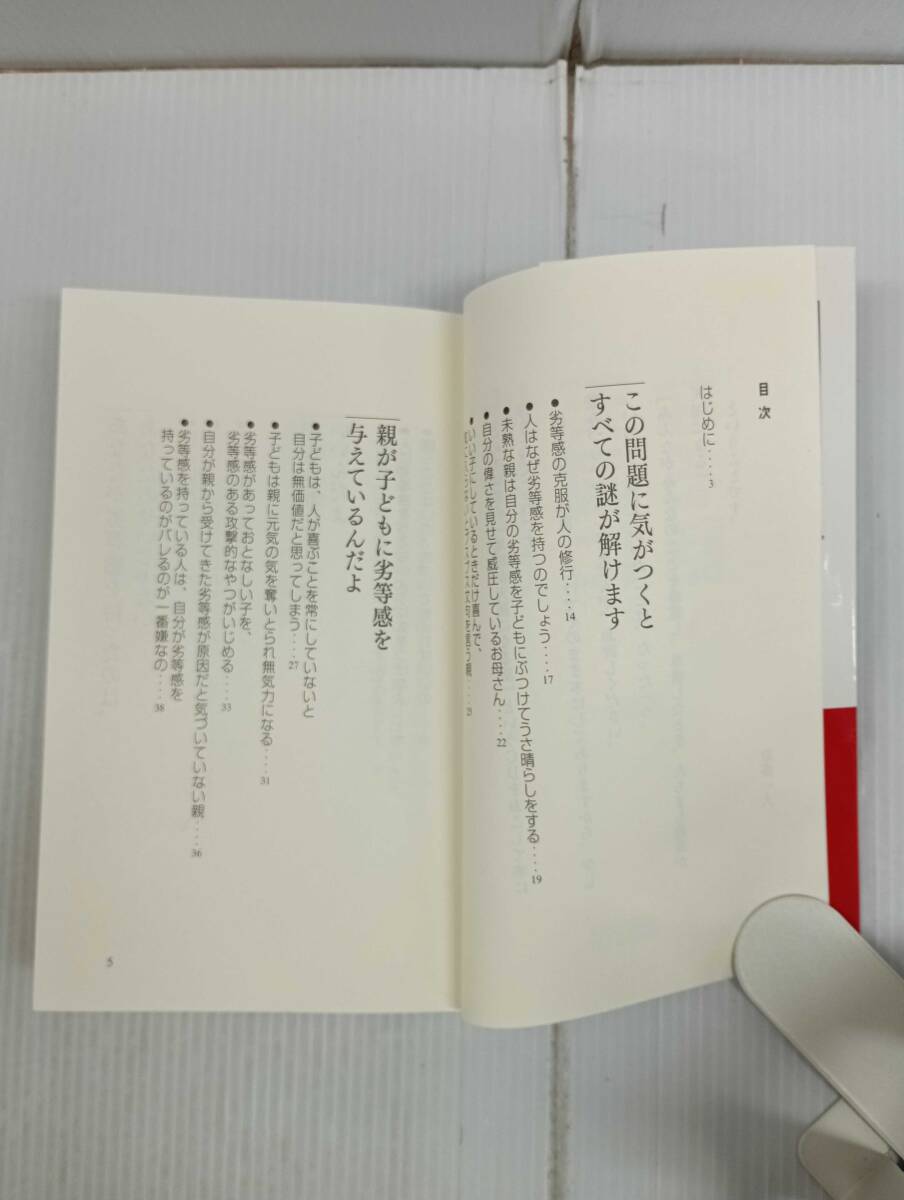 目次
はじめに････3
この問題に気がつくと
すべての謎が解けます
●劣等感の克服が人の修行････14
●人はなぜ劣等感を持つのでしょう････17
●未熟な親は自分の劣等感を子どもにぶつけてうさ晴らしをする････19
●自分の偉さを見せて威圧しているお母さん････22
●いい子にしているときだけ喜んで、
を言う親････25
親が子どもに劣等感を
与えているんだよ
●子どもは、人が喜ぶことを常にしていないと
自分は無価値だと思ってしまう････27
●子どもは親に元気の気を奪いとられ無気力になる････31
●劣等感があっておとなしい子を、
劣等感のある攻撃的なやつがいじめる････33
●自分が親から受けてきた劣等感が原因だと気づいていない親････36
●劣等感を持っている人は、自分が劣等感を
持っているのがバレるのが一番嫌なの････38
5